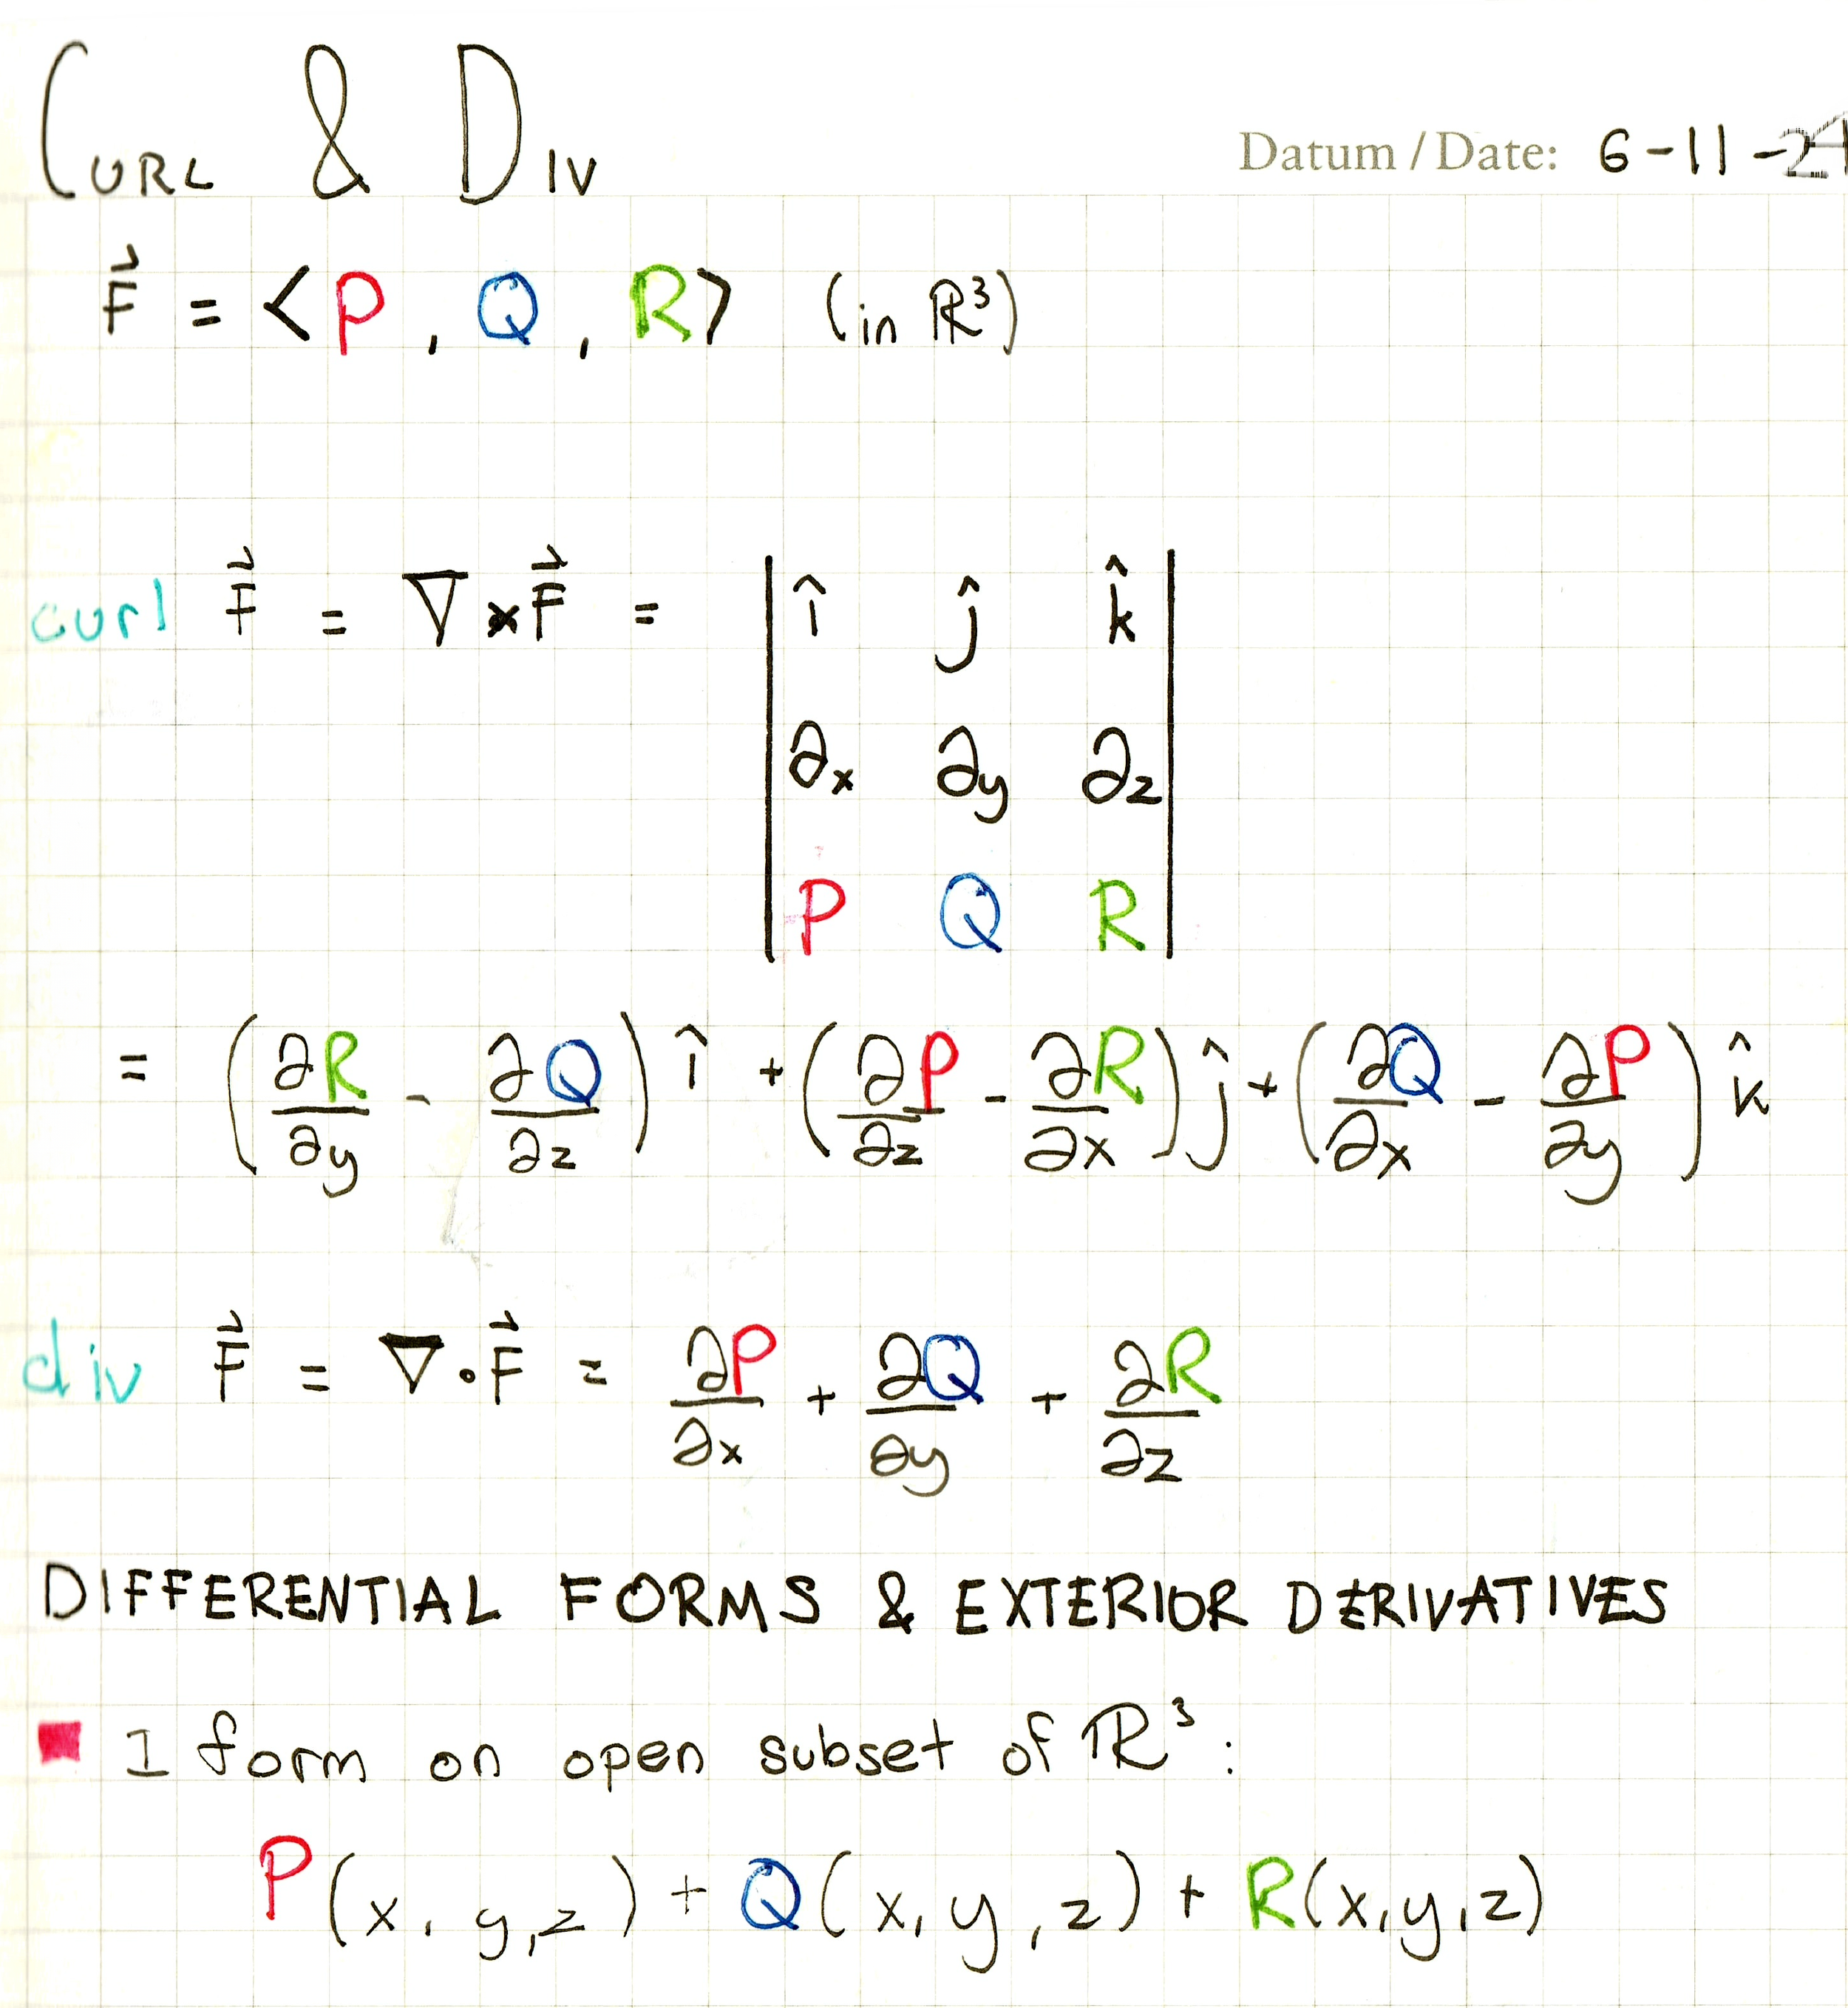 CURL & DIV
Datum / Date: 6-11-21
F⃗ = <P, Q, R> (in ℝ³)
curl F⃗ = ∇×F⃗ = | î ĵ k̂ |
| ∂x ∂y ∂z |
| P Q R |
= (∂R/∂y - ∂Q/∂z) î + (∂P/∂z - ∂R/∂x) ĵ + (∂Q/∂x - ∂P/∂y) k̂
div F⃗ = ∇·F⃗ = ∂P/∂x + ∂Q/∂y + ∂R/∂z
DIFFERENTIAL FORMS & EXTERIOR DERIVATIVES
1 form on open subset of ℝ³:
P(x, y, z) + Q(x, y, z) + R(x, y, z)